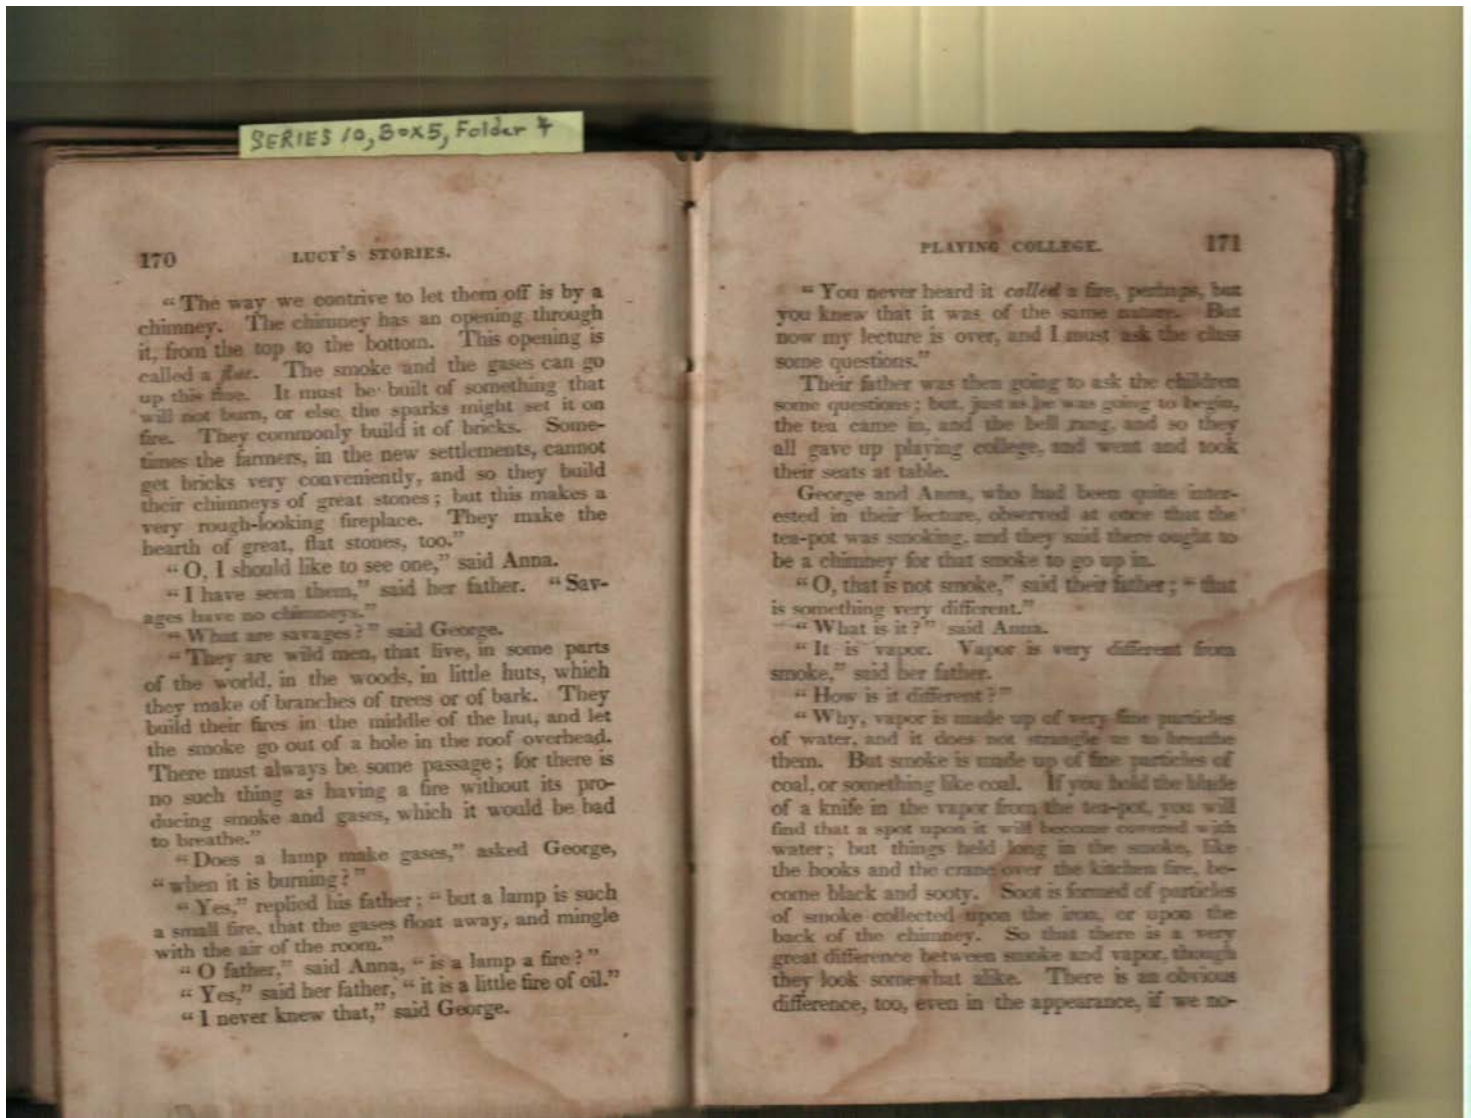 SERIES 10, BOX 5, Folder 7
170 LUCY'S STORIES.
“The way we contrive to let them off is by a
chimney. The chimney has an opening through
it, from the top to the bottom. This opening is
called a flue. The smoke and the gases can go
up this flue. It must be built of something that
will not burn, or else the sparks might set it on
fire. They commonly build it of bricks. Some-
times the farmers, in the new settlements, cannot
get bricks very conveniently, and so they build
their chimneys of great stones; but this makes a
very rough-looking fireplace. They make the
hearth of great, flat stones, too.”
“O, I should like to see one,” said Anna.
“I have seen them,” said her father. “Sav-
ages have no chimneys.”
“What are savages?” said George.
“They are wild men, that live, in some parts
of the world, in the woods, in little huts, which
they make of branches of trees or of bark. They
build their fires in the middle of the hut, and let
the smoke go out of a hole in the roof overhead.
There must always be some passage; for there is
no such thing as having a fire without its pro-
ducing smoke and gases, which it would be bad
to breathe.”
“Does a lamp make gases,” asked George,
“when it is burning?”
“Yes,” replied his father; “but a lamp is such
a small fire, that the gases float away, and mingle
with the air of the room.”
“O father,” said Anna, “is a lamp a fire?”
“Yes,” said her father, “it is a little fire of oil.”
“I never knew that,” said George.
PLAYING COLLEGE. 171
“You never heard it called a fire, perhaps, but
you knew that it was of the same nature. But
now my lecture is over, and I must ask the class
some questions.”
Their father was then going to ask the children
some questions; but, just as he was going to begin,
the tea came in, and the bell rung, and so they
all gave up playing college, and went and took
their seats at table.
George and Anna, who had been quite inter-
ested in their lecture, observed at once that the
tea-pot was smoking, and they said there ought to
be a chimney for that smoke to go up in.
“O, that is not smoke,” said their father; “that
is something very different.”
“What is it?” said Anna.
“It is vapor. Vapor is very different from
smoke,” said her father.
“How is it different?”
“Why, vapor is made up of very fine particles
of water, and it does not strangle us to breathe
them. But smoke is made up of fine particles of
coal, or something like coal. If you hold the blade
of a knife in the vapor from the tea-pot, you will
find that a spot upon it will become covered with
water; but things held long in the smoke, like
the hooks and the crane over the kitchen fire, be-
come black and sooty. Soot is formed of particles
of smoke collected upon the iron, or upon the
back of the chimney. So that there is a very
great difference between smoke and vapor, though
they look somewhat alike. There is an obvious
difference, too, even in the appearance, if we no-